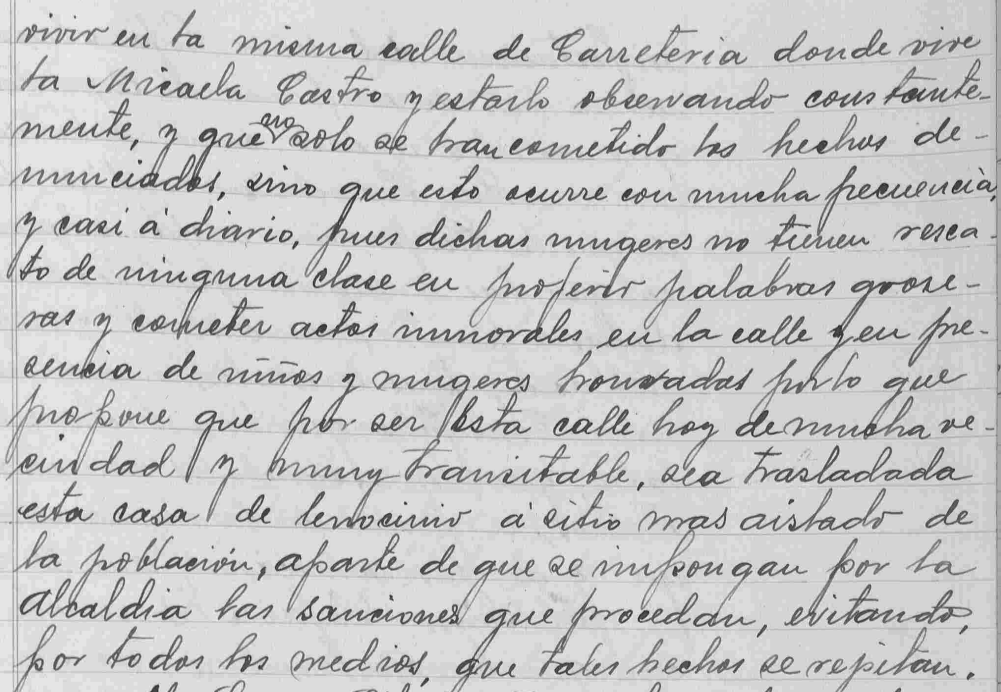 vivir en la misma calle de Carreteria donde vive
la Micaela Castro y estarlo observando constante-
mente, y que no solo se han cometido los hechos de-
nunciados, sino que esto ocurre con mucha frecuencia,
y casi á diario, pues dichas mugeres no tienen reca-
to de ninguna clase en proferir palabras grose-
ras y cometer actos inmorales en la calle y en pre-
sencia de niños y mugeres honradas por lo que
propone que por ser esta calle hoy de mucha ve-
cindad y muy transitable, sea trasladada
esta casa de lenocinio á sitio mas aislado de
la población, aparte de que se impongan por la
Alcaldia las sanciones que procedan, evitando,
por todos los medios, que tales hechos se repitan.